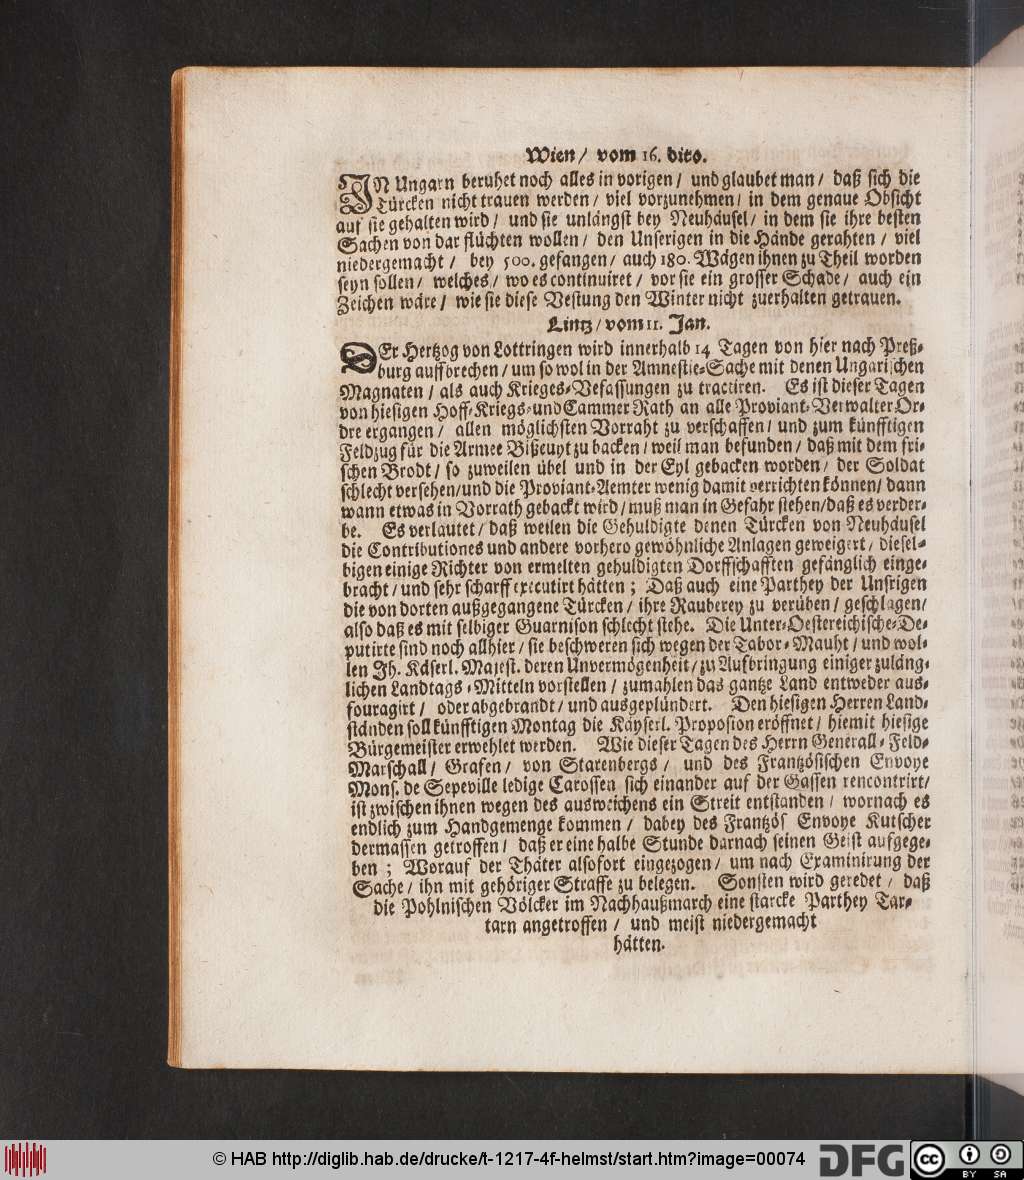 Wien / vom 16. dito.
IN Ungarn beruhet noch alles in vorigen / und glaubet man / daß sich die
Türcken nicht trauen werden / viel vorzunehmen / in dem genaue Obsicht
auf sie gehalten wird / und sie unlängst bey Neuhäusel / in dem sie ihre besten
Sachen von dar flüchten wollen / den Unserigen in die Hände gerahten / viel
niedergemacht / bey 500. gefangen / auch 180. Wägen ihnen zu Theil worden
seyn sollen / welches / wo es continuiret / vor sie ein grosser Schade / auch ein
Zeichen wäre / wie sie diese Vestung den Winter nicht zuerhalten getrauen.
Lintz / vom 11. Jan.
DEr Hertzog von Lottringen wird innerhalb 14 Tagen von hier nach Preß-
burg auffbrechen / um so wol in der Amnestie-Sache mit denen Ungarischen
Magnaten / als auch Krieges-Vefassungen zu tractiren. Es ist dieser Tagen
von hiesigen Hoff-Kriegs-und Cammer Rath an alle Proviant-Verwalter Or-
dre ergangen / allen möglichsten Vorraht zu verschaffen / und zum künfftigen
Feldzug für die Armee Bißcuyt zu backen / weil man befunden / daß mit dem fri-
schen Brodt / so zuweilen übel und in der Eyl gebacken worden / der Soldat
schlecht versehen/und die Proviant-Aemter wenig damit verrichten können/ dann
wann etwas in Vorrath gebackt wird / muß man in Gefahr stehen/daß es verder-
be. Es verlautet / daß weilen die Gehuldigte denen Türcken von Neuhäusel
die Contributiones und andere vorhero gewöhnliche Anlagen geweigert / diesel-
bigen einige Richter von ermelten gehuldigten Dorffschafften gefänglich einge-
bracht / und sehr scharff executirt hätten ; Daß auch eine Parthey der Unsrigen
die von dorten außgegangene Türcken / ihre Rauberey zu verüben / geschlagen/
also daß es mit selbiger Guarnison schlecht stehe. Die Unter-Oestereichische-De-
putirte sind noch allhier / sie beschweren sich wegen der Tabor-Mauht / und wol-
len Jh. Käserl. Majest. deren Unvermögenheit / zu Aufbringung einiger zuläng-
lichen Landtags-Mitteln vorstellen / zumahlen das gantze Land entweder aus-
fouragirt / oder abgebrandt / und ausgeplündert. Den hiesigen Herren Land-
ständen soll künfftigen Montag die Käyserl. Proposion eröffnet / hiemit hiesige
Bürgemeister erwehlet werden. Wie dieser Tagen des Herrn Generall-Feld-
Marschall / Grafen / von Starenbergs / und des Frantzösischen Envoye
Mons. de Sepeville ledige Carossen sich einander auf der Gassen rencontrirt/
ist zwischen ihnen wegen des ausweichens ein Streit entstanden / wornach es
endlich zum Handgemenge kommen / dabey des Frantzös Envoye Kutscher
dermassen getroffen / daß er eine halbe Stunde darnach seinen Geist aufgege-
ben ; Worauf der Thäter alsofort eingezogen / um nach Examinirung der
Sache / ihn mit gehöriger Straffe zu belegen. Sonsten wird geredet / daß
die Pohlnischen Völcker im Nachhaußmarch eine starcke Parthey Tar-
tarn angetroffen / und meist niedergemacht
hätten.
© HAB http://diglib.hab.de/drucke/t-1217-4f-helmst/start.htm?image=00074
DFG
cc
BY SA